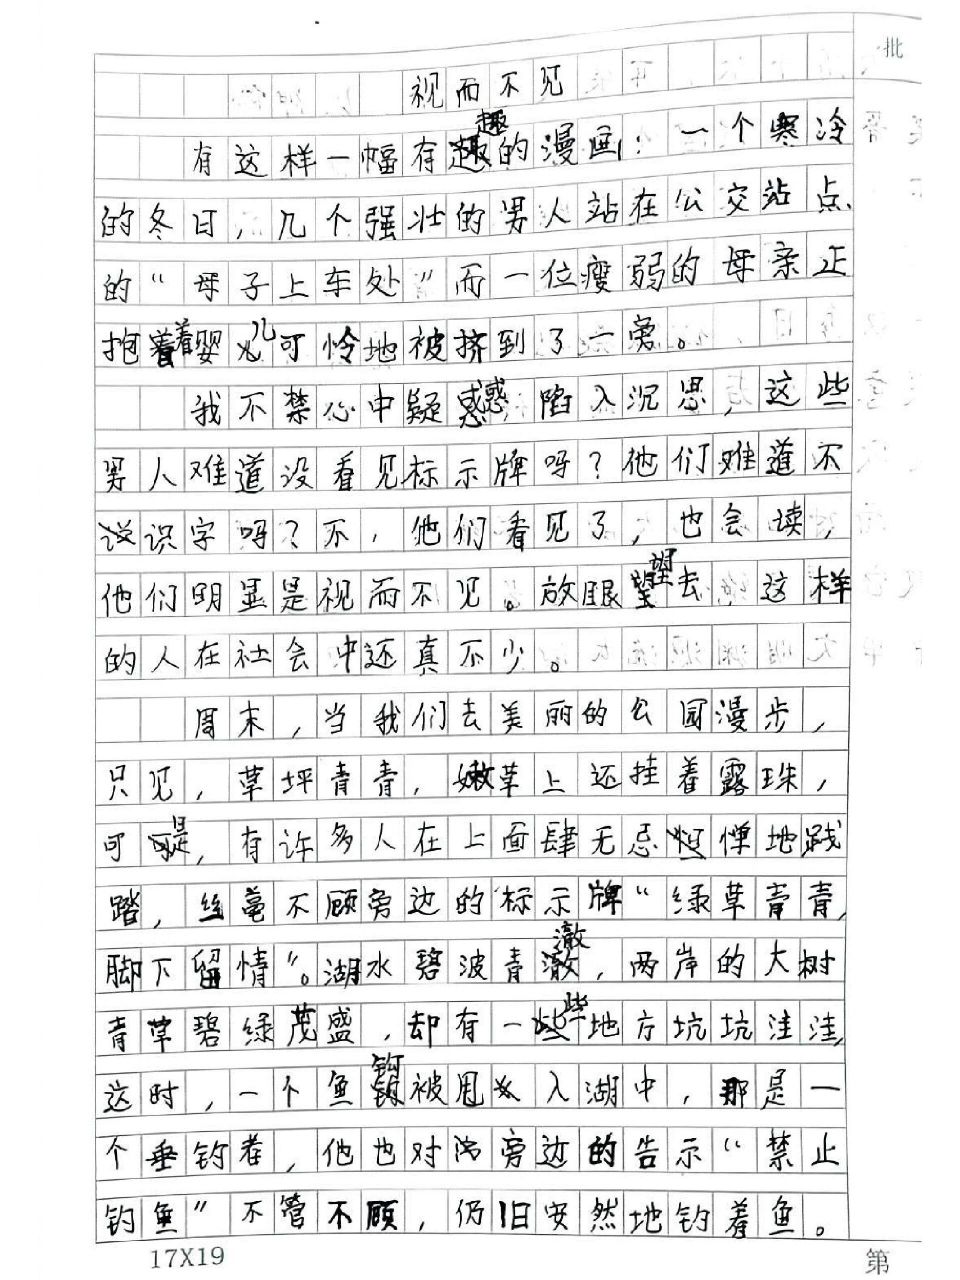 批
视而不见
有这样一幅有趣的漫画：一个寒冷
的冬日，几个强壮的男人站在公交站点
的“母子上车处”而一位瘦弱的母亲正
抱着婴儿可怜地被挤到了一旁。
我不禁心中疑惑陷入沉思，这些
男人难道没看见标示牌吗？他们难道不
识字吗？不，他们看见了，也会读，
他们明显是视而不见。放眼望去，这样
的人在社会中还真不少。
周末，当我们去美丽的公园漫步，
只见，草坪青青，嫩草上还挂着露珠，
可是，有许多人在上面肆无忌惮地践
踏，丝毫不顾旁边的标示牌“绿草青青，
脚下留情”。湖水碧波青澈，两岸的大树
青草碧绿茂盛，却有一些地方坑坑洼洼，
这时，一个鱼钩被甩入湖中，那是一
个垂钓者，他也对湖旁边的告示“禁止
钓鱼”不管不顾，仍旧安然地钓着鱼。
17X19
第